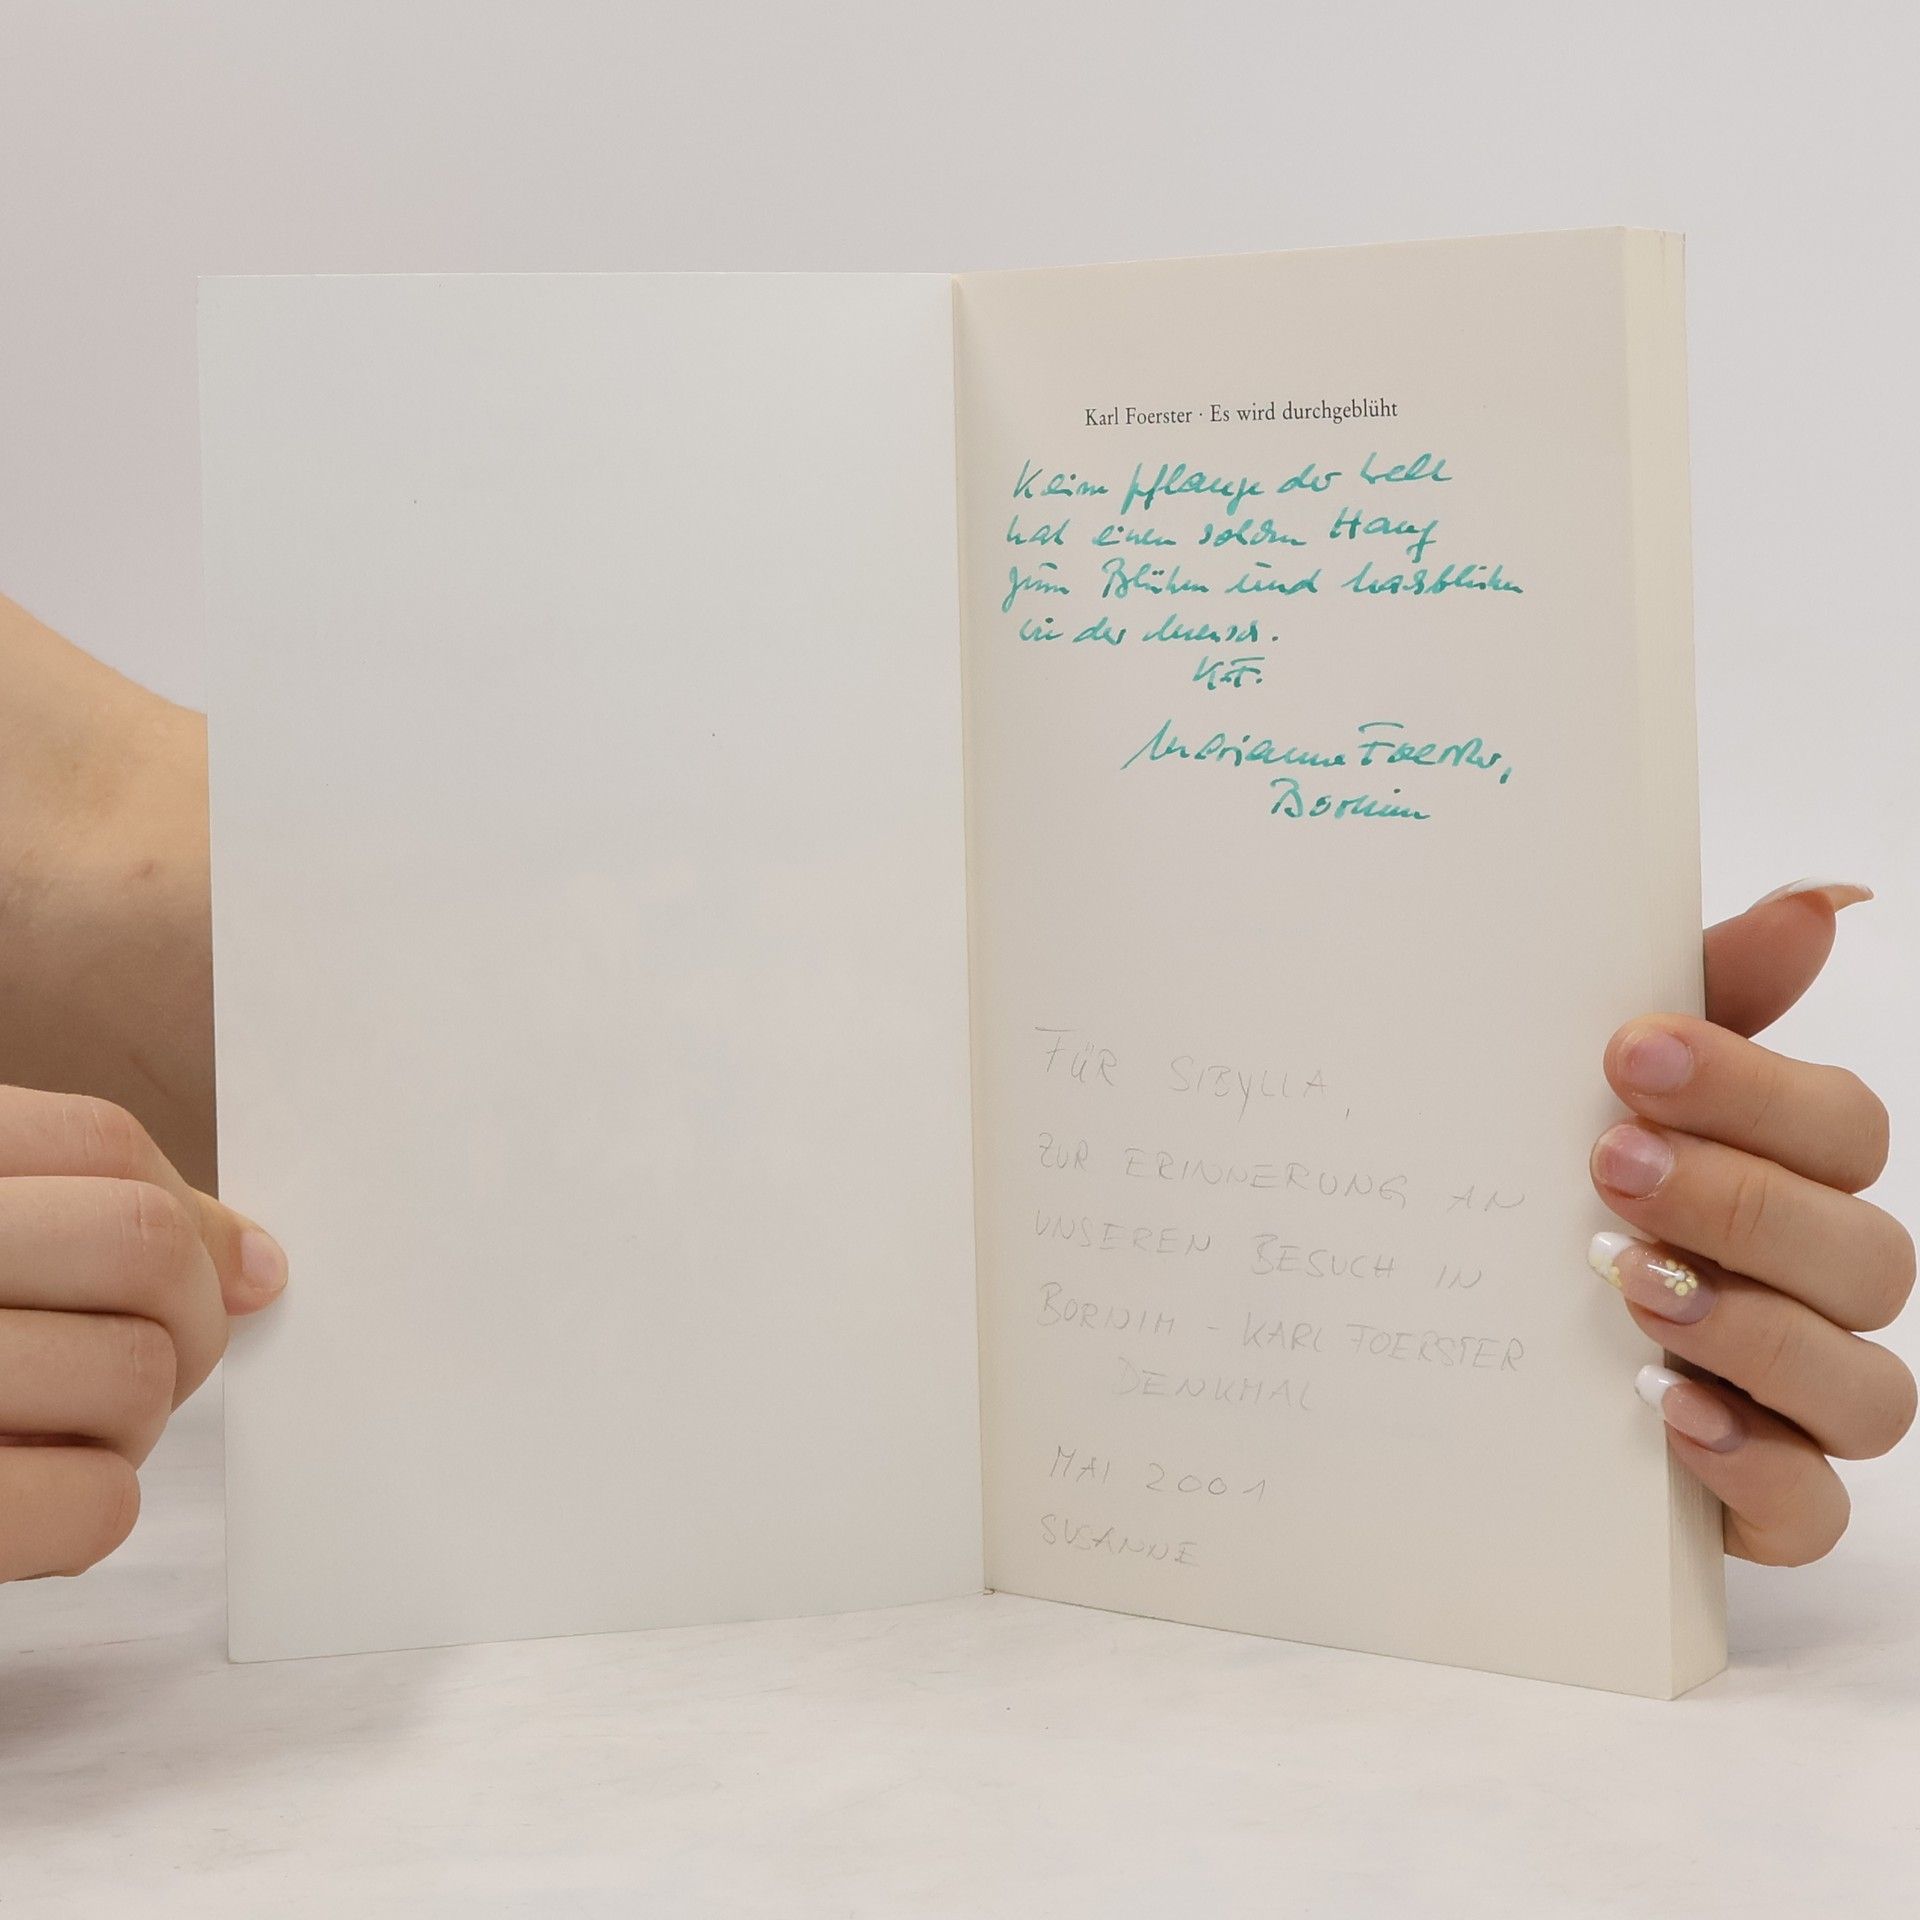 Karl Foerster · Es wird durchgeblüht
Keine Pflanze der Welt
hat einen solchen Hang
zum Blühen und Nachblühen
wie der Mensch.
K.F.
Marianne Foerster,
Bornim
FÜR SIBYLLA,
ZUR ERINNERUNG AN
UNSEREN BESUCH IN
BORNIM – KARL FOERSTER
DENKMAL
MAI 2001
SUSANNE